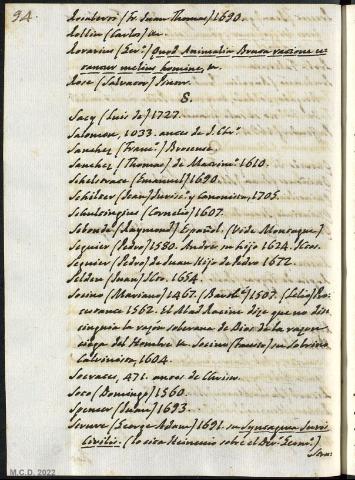 94.
Rocaberti (Fr. Juan Thomas) 1690.
Rollin (Carlos) &c.
Rorarius (Ger.º) Quod Animalia Bruta razione u-
tantur melius homine, &c.
Rose (Salvator) Pintor.
S.
Sacy (Luis de) 1727.
Salomon, 1033. antes de J. Chr.º
Sanchez (Franc.º) Brocense.
Sanchez (Thomas) de Matrim.º 1610.
Schelstrate (Emanuel) 1690.
Schilter (Juan) Jurisc.º y Canonista, 1705.
Schultingius (Cornelio) 1607.
Sebonde (Raymond) Español. (Vide Montaque)
Seguier (Pedro) 1580. Andres su hijo 1624. Jtos.
Seguier (Pedro) de Juan Hijo de Pedro 1672.
Selden (Juan) Jto. 1654.
Socino (Mariano) 1467. (Barthº) 1507. (Lelio) Pro-
testante 1562. El Abad Racine dize que no dis-
tinguia la razón soberana de Dios de la razon
ciega del Hombre &c. Socino (Fausto) su Sobrino
Calvinista, 1604.
Socrates, 471. antes de Christo.
Soto (Domingo) 1560.
Spencer (Juan) 1693.
Struve (George Adam) 1691. su Syntagma Juris
Civilis. (lo cita Heinecio sobre el Dro. Germ.º)
M.C.D. 2022